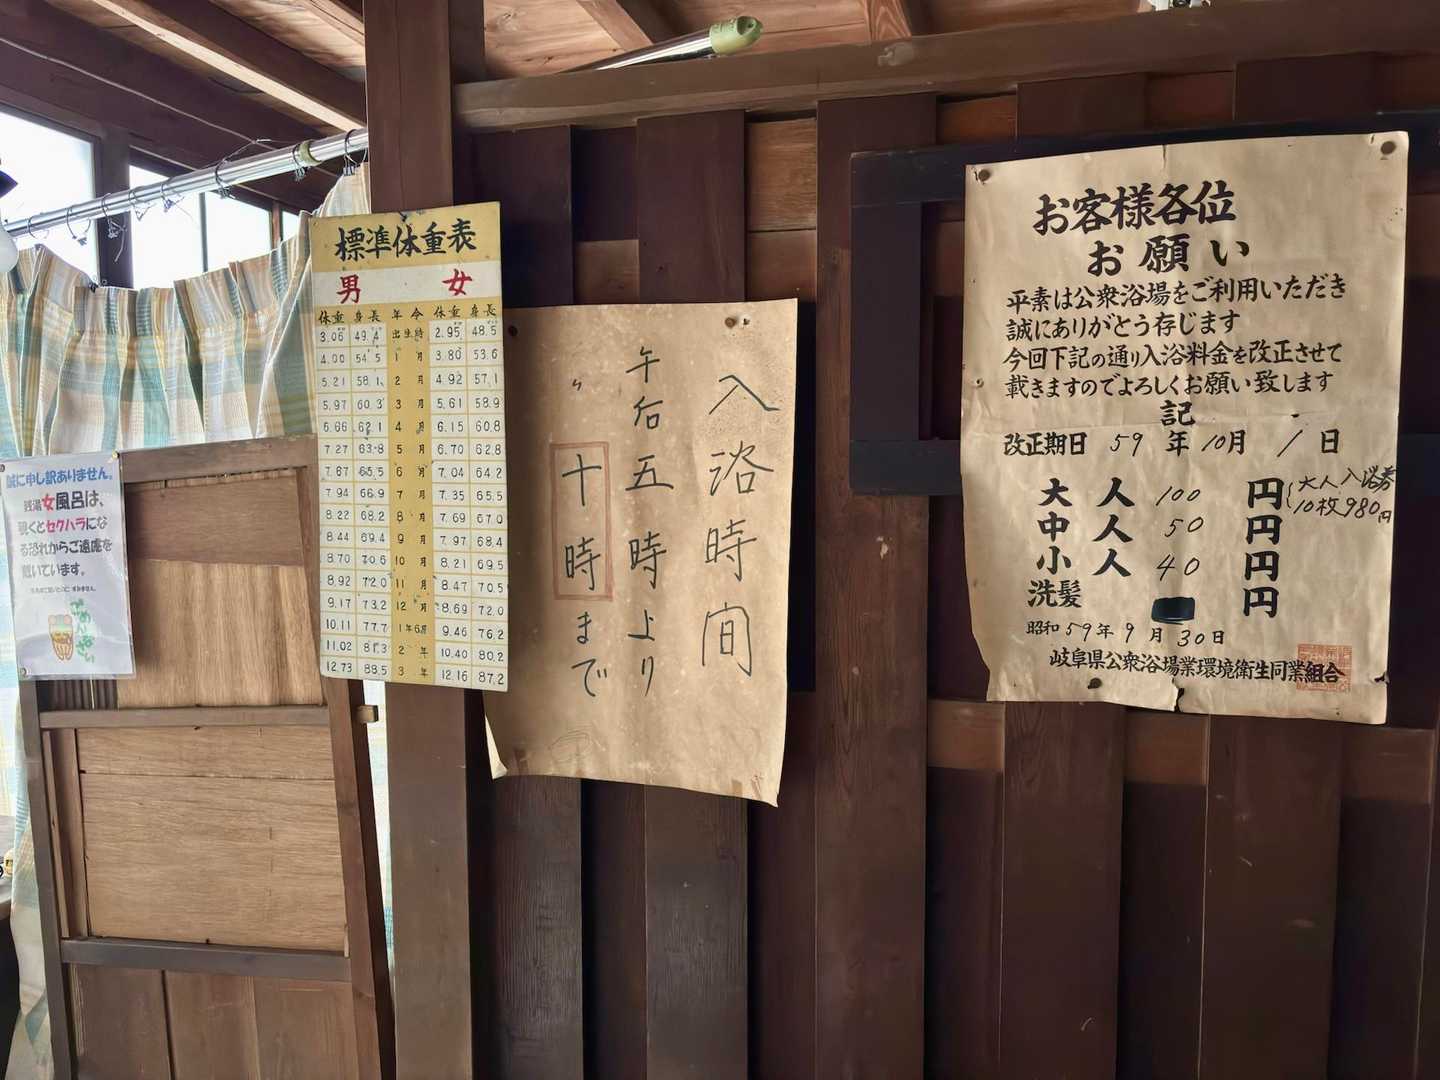 誠に申し訳ありません。
銭湯女風呂は、
覗くとセクハラにな
る恐れからご遠慮を
戴いています。
ごめんなさい
標準体重表
男 女
体重 身長 年令 体重 身長
3.06 49.4 出生時 2.95 48.5
4.00 54.5 1月 3.80 53.6
5.21 58.1 2月 4.92 57.1
5.97 60.3 3月 5.61 58.9
6.66 62.1 4月 6.15 60.8
7.27 63.8 5月 6.70 62.8
7.67 65.5 6月 7.04 64.2
7.94 66.9 7月 7.35 65.5
8.22 68.2 8月 7.69 67.0
8.44 69.4 9月 7.97 68.4
8.70 70.6 10月 8.21 69.5
8.92 72.0 11月 8.47 70.5
9.17 73.2 12月 8.69 72.0
10.11 77.7 1年6月 9.46 76.2
11.02 81.3 2年 10.40 80.2
12.73 88.5 3年 12.16 87.2
入浴時間
午后五時より
〃十時まで
お客様各位
お願い
平素は公衆浴場をご利用いただき
誠にありがとう存じます
今回下記の通り入浴料金を改正させて
載きますのでよろしくお願い致します
記
改正期日 59年10月1日
大人 100円 大人入浴券
10枚980円
中人 50円
小人 40円
洗髪 円
昭和59年9月30日
岐阜県公衆浴場業環境衛生同業組合